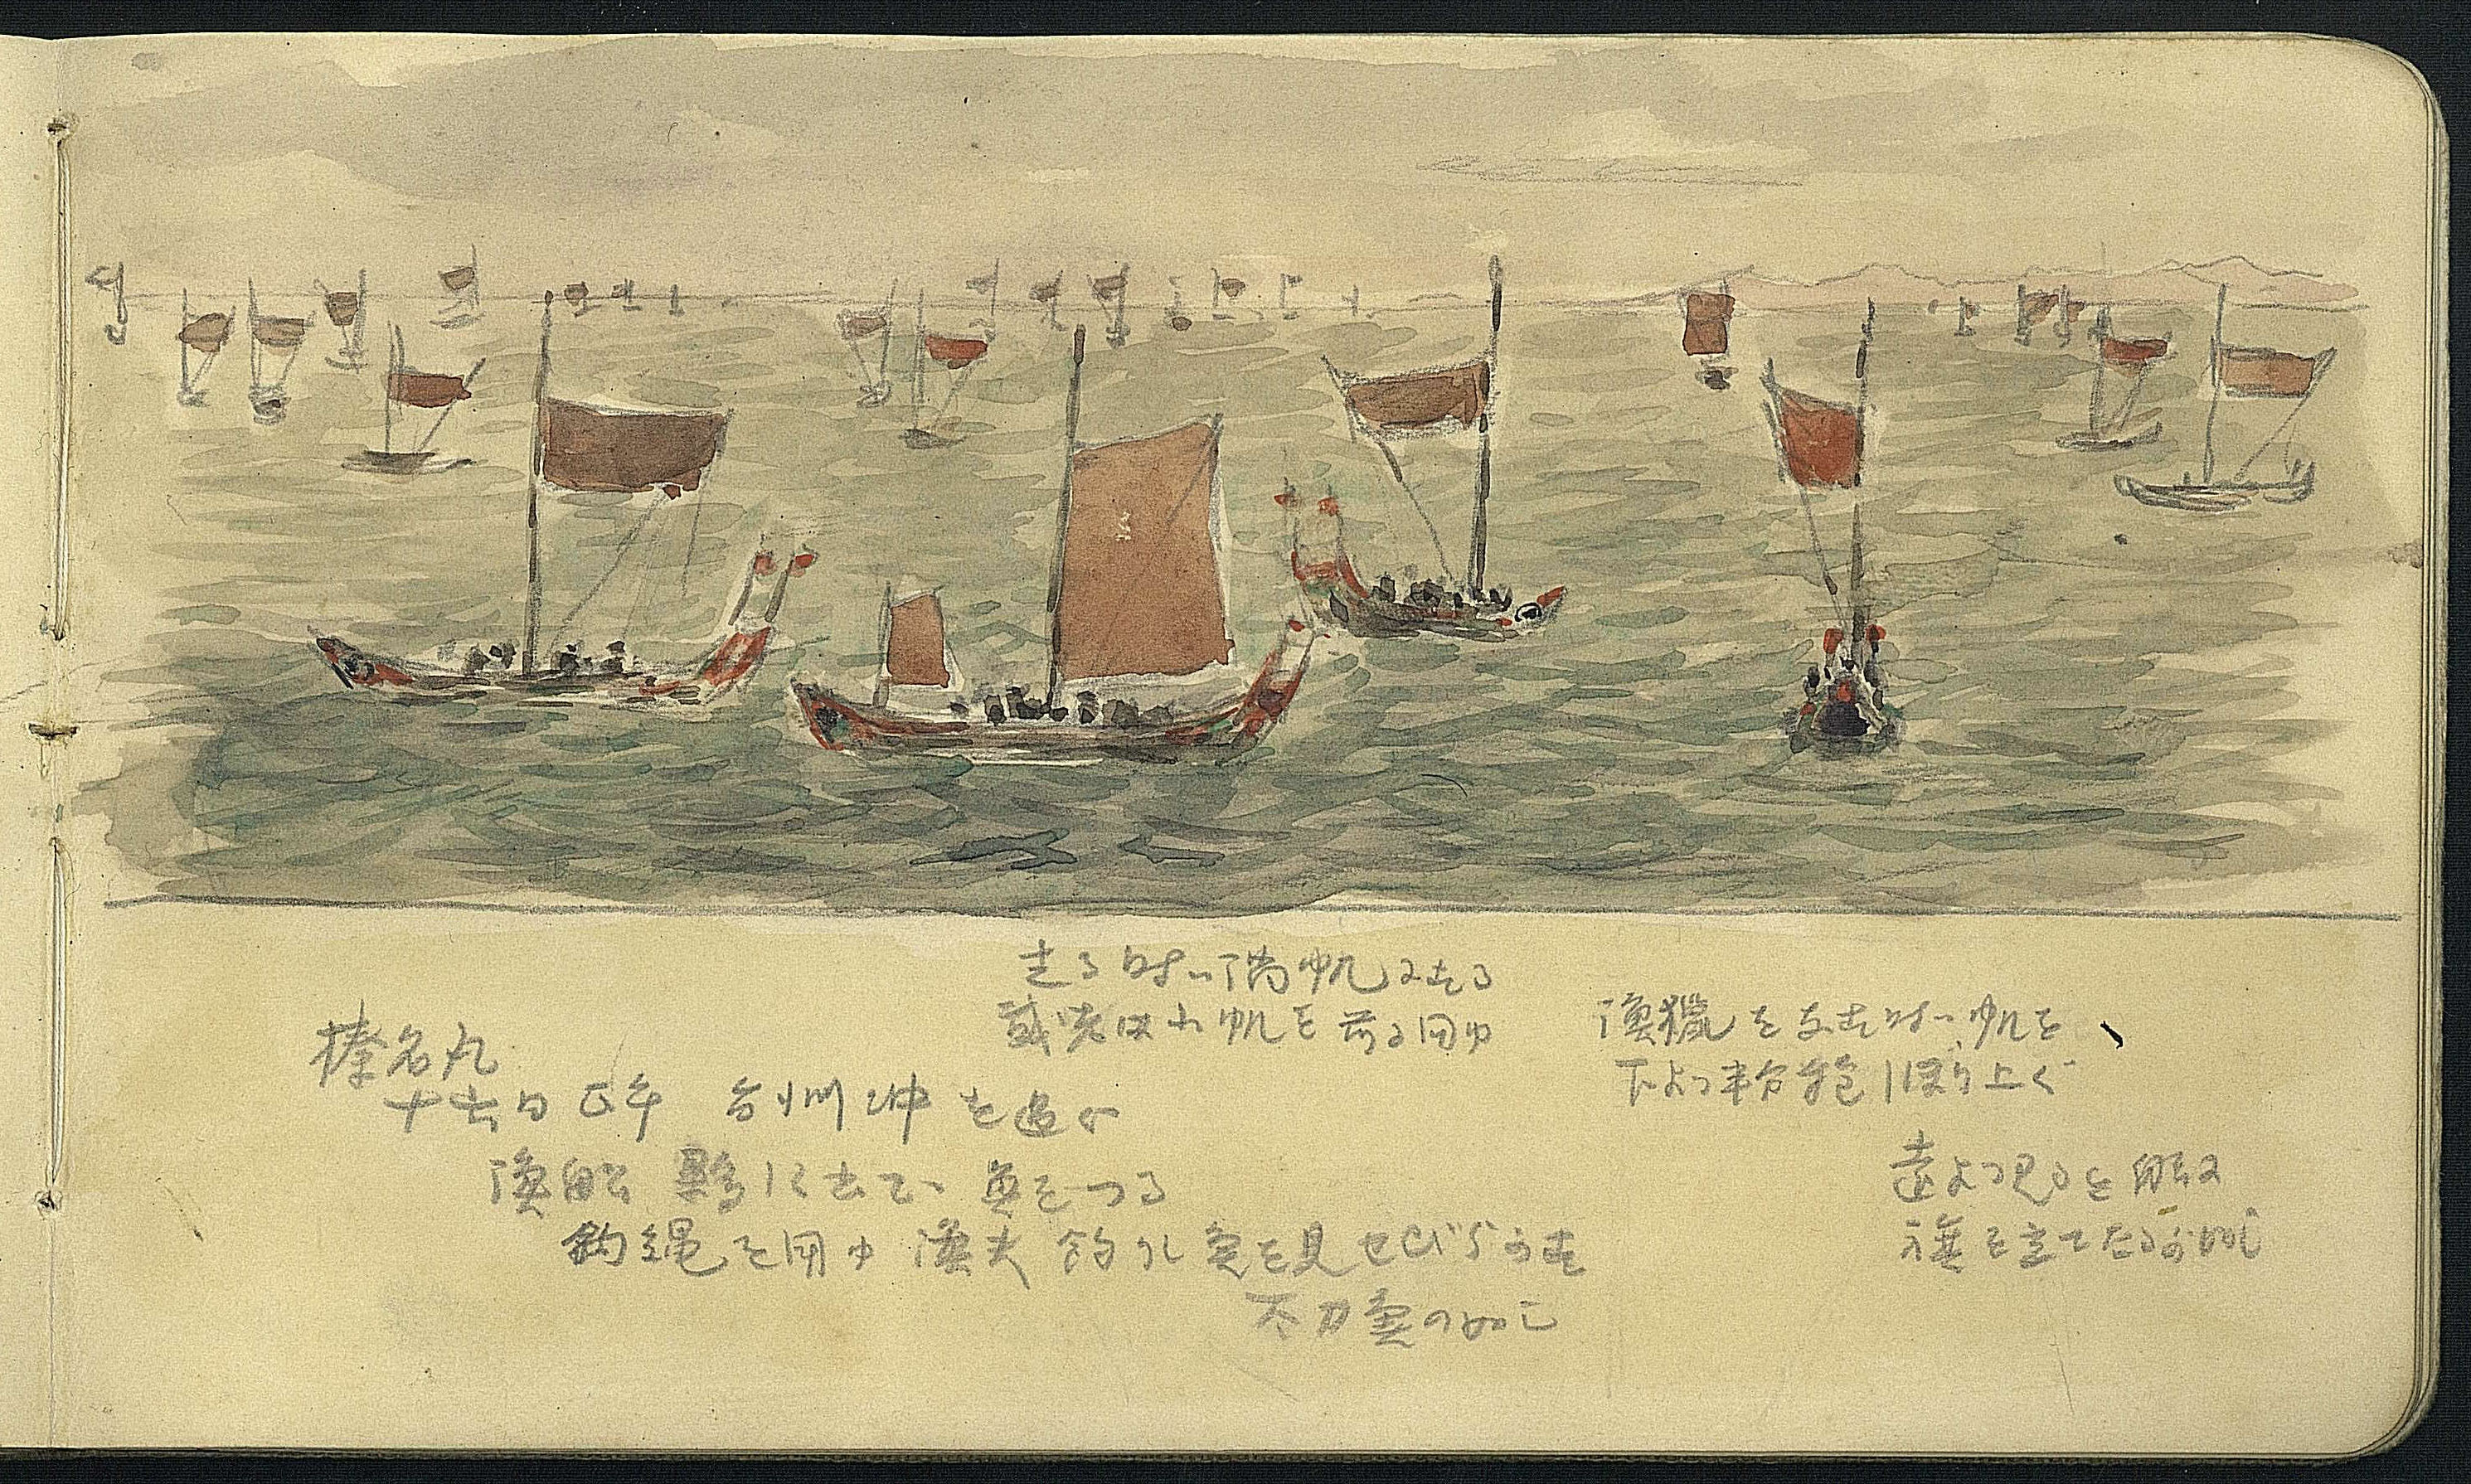 走る時ハ満帆にて走る
或時は小帆を前に用ゆ
漁猟を为す時ハ帆を
下より半分程しぼり上ぐ
榛名丸
十六日 正午 台州沖を過ぐ
漁船 夥しく出て、魚をつる
釣縄を用ゆ 漁夫 釣りし魚を見せびらかす
太刀魚の如し
遠より見ると船に
旗を立てたるが如し